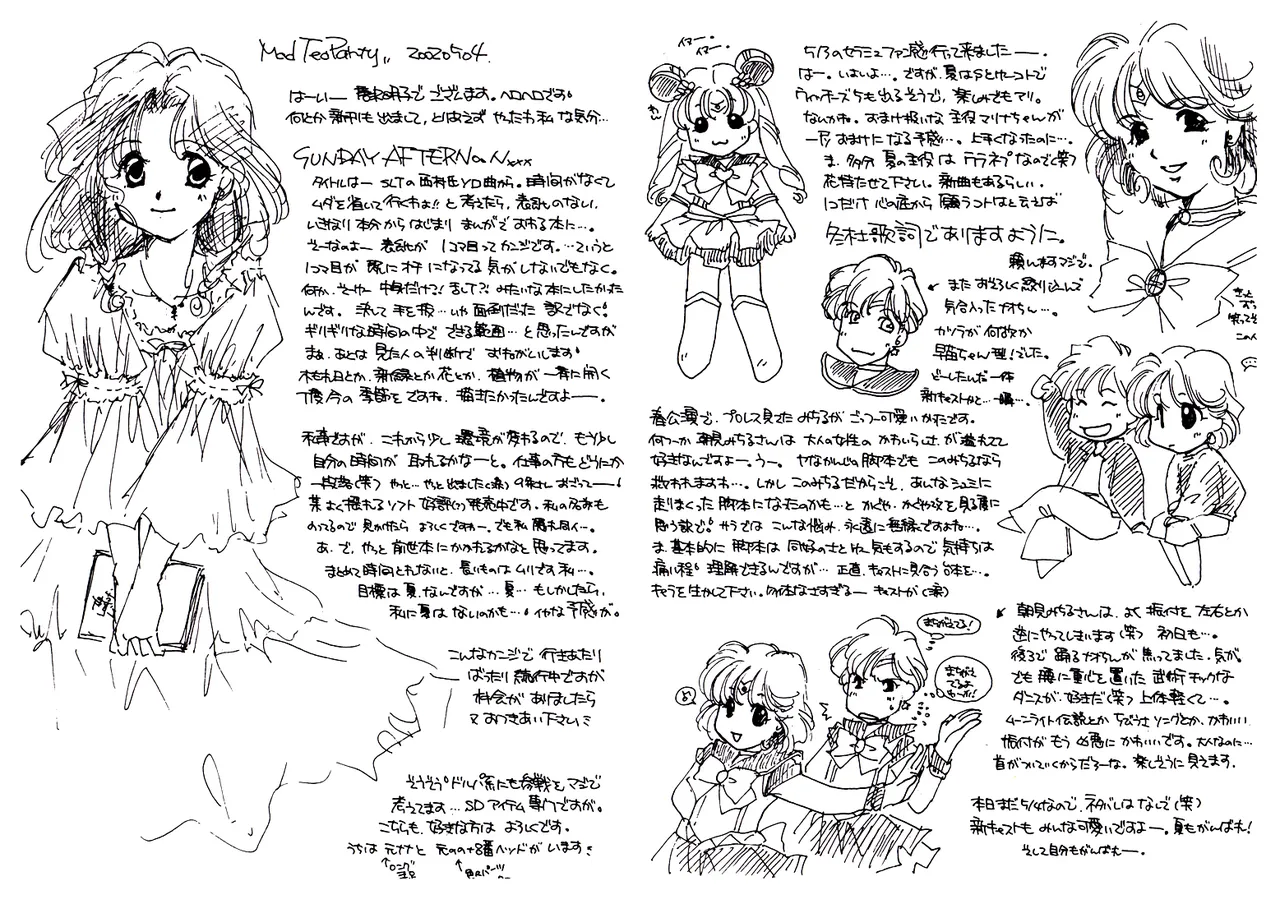 Mad Tea Party,, 20020504.
はーい―
でございます。ヘロヘロです。
何とか新刊も出まして、とりあえず やったも私 な気分…
SUNDAY AFTERNOON xxx
タイトルは― SLTの西村氏 曲から。時間がなくて
ムダを省いて行くわよ!! と考えたら、表紙のない、
いきなり本分からはじまり まんがで おわる本に…。
そーなのよ― 表紙が 1コマ目ってカンジです。…というと
1コマ目が 既にオチになってる気がしないでもなく。
何か、そーゆー 中身だけで! まして?! みたいな本にしたかった
んです。決して手を抜…いや面倒だった訳でなく
ギリギリな時間の中で できる範囲…と思ったんですが
まぁ、あとは 見た人の判断で おねがいします
木もれ日とか、新緑とか花とか、植物が 一斉に開く
丁度今の季節をですね、描きたかったんですよ――。
私事ですが、これから少し環境が変わるので、もう少し
自分の時間が 取れるかな―と。仕事の方もどうにか
一段落(笑) やっと…やっと出ました(涙)
某よく揺れるソフト 好評(?)発売中です。私の名前も
のってるので 見かけたら よろしくですわ―。でも私
あ、で、やっと前世本にかかれるかなと思ってます。
まとめて時間とれないと、長いものはムリです私…。
目標は夏、なんですが…夏…もしかしたら、
私に夏は ないのかも…イヤな予感が。
こんなカンジで 行きあたり
ばったり 続行中ですが
機会がありましたら
又おつきあい下さいミ
そうそう"ドルパ"系にも参戦をマジで
考えてます…SDアイテム専門ですが。
こちらも、好きな方は よろしくです。
うちは 元ナナと 元のの+8番ヘッドがいますミ
↑ロング
イヤー。
イヤー。
5/3のセラミュファン感行って来ました――。
はー。いよいよ…。ですが、夏はSとゆーコトで
Witchーズ5も出るそうで、楽しみでもアリ。
ないかね。おまけ扱いな 主役マリナちゃんが
一層おまけになる予感…。上手くなったのに…。
ま、多分 夏の主役は ウラネプなので(笑)
花持たせて下さい。新曲もあるらしい。
1コだけ 心の底から 願うコトはと云えば
冬杜歌詞でありますように。
頼んますマジで。
また おそろしく絞り込んで
気合入ったカオちん…。
カツラが何故か
早苗ちゃん理!でした。
どーしたんだ一体
新キャストかと…一瞬…。
春公演で、プロレス見せた みちるが ごっつー可愛いかったです。
何つーか 朝見みちるさんは 大人の女性の かわいらしさが溢れてて
好きなんですよ―。う―。ヤなかんじの脚本でも このみちるなら
救われますね…。しかし このみちるだからこそ、あんなシュミに
走りまくった脚本になったのかも…と かぐや、かぐや改を見る度に
思う訳で。サラでは こんな悩み、永遠に無縁ですよね…。
ま、基本的に 脚本は 同好のさとわ 気もするので 気持ちは
痛い程 理解できるんですが… 正直、キャストに見合う台本を…。
キャラを生かして下さい。勿体なさすぎる― キャストが(涙)
朝見みちるさんは、よく 振付を 左右とか
逆にやってしまいます(笑) 初日も…。
後ろで 踊るカオちんが 焦ってました。気が。
でも 腰に重心を置いた 武術チックな
ダンスが、好きだ(笑) 上体軽くて…。
ムーンライト伝説とか ちびうさ ソングとか、かわいい
振付が もう 凶悪に かわいいです。大人なのに…
首がついていくからだろーな。楽しそうに 見えます。
まちがえてる!
まちがえ
てるよ
本日まだ5/4なので、ネタバレはなしで(笑)
新キャストも みんな可愛いですよ―。夏もがんばれ!
そして自分もがんばれ―。